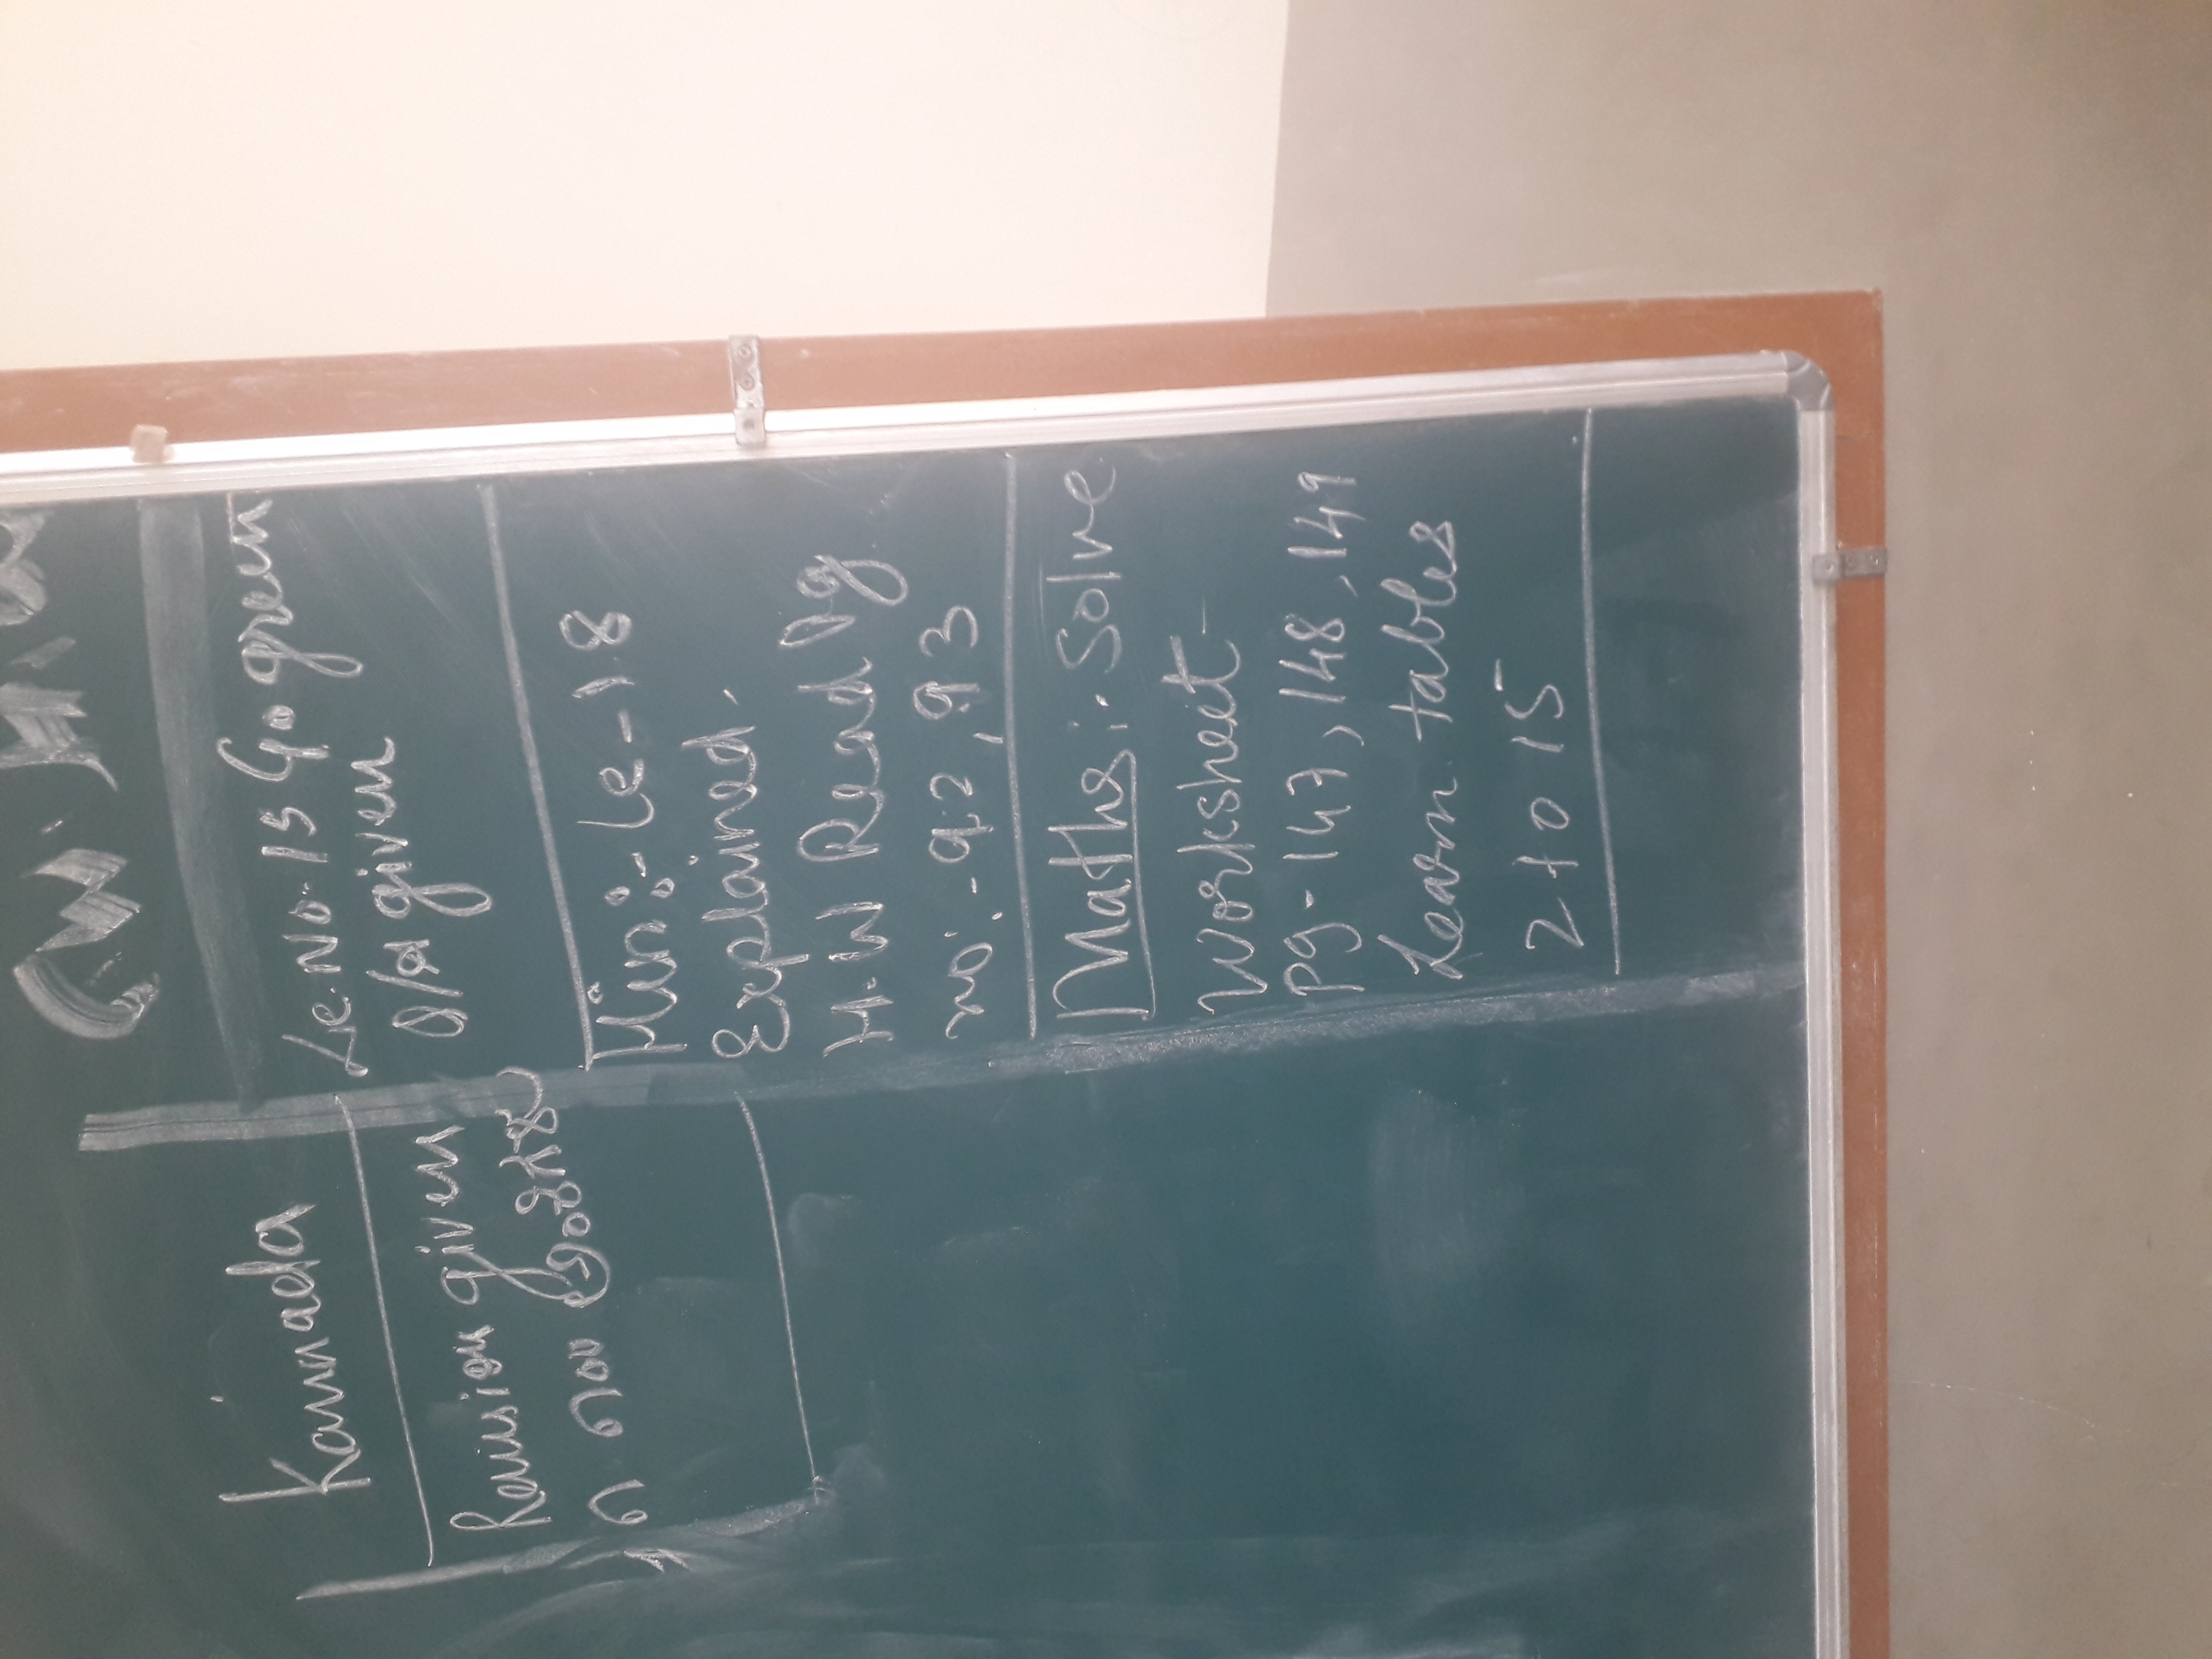 Kannada
Revision given
Le. No. 15 Go green
Q/A given
Hin:- Le-18
Explained.
H.W Read Pg
no:- 92, 93
Maths: Solve
Worksheet-
Pg- 147, 148, 149
Learn tables
2 to 15